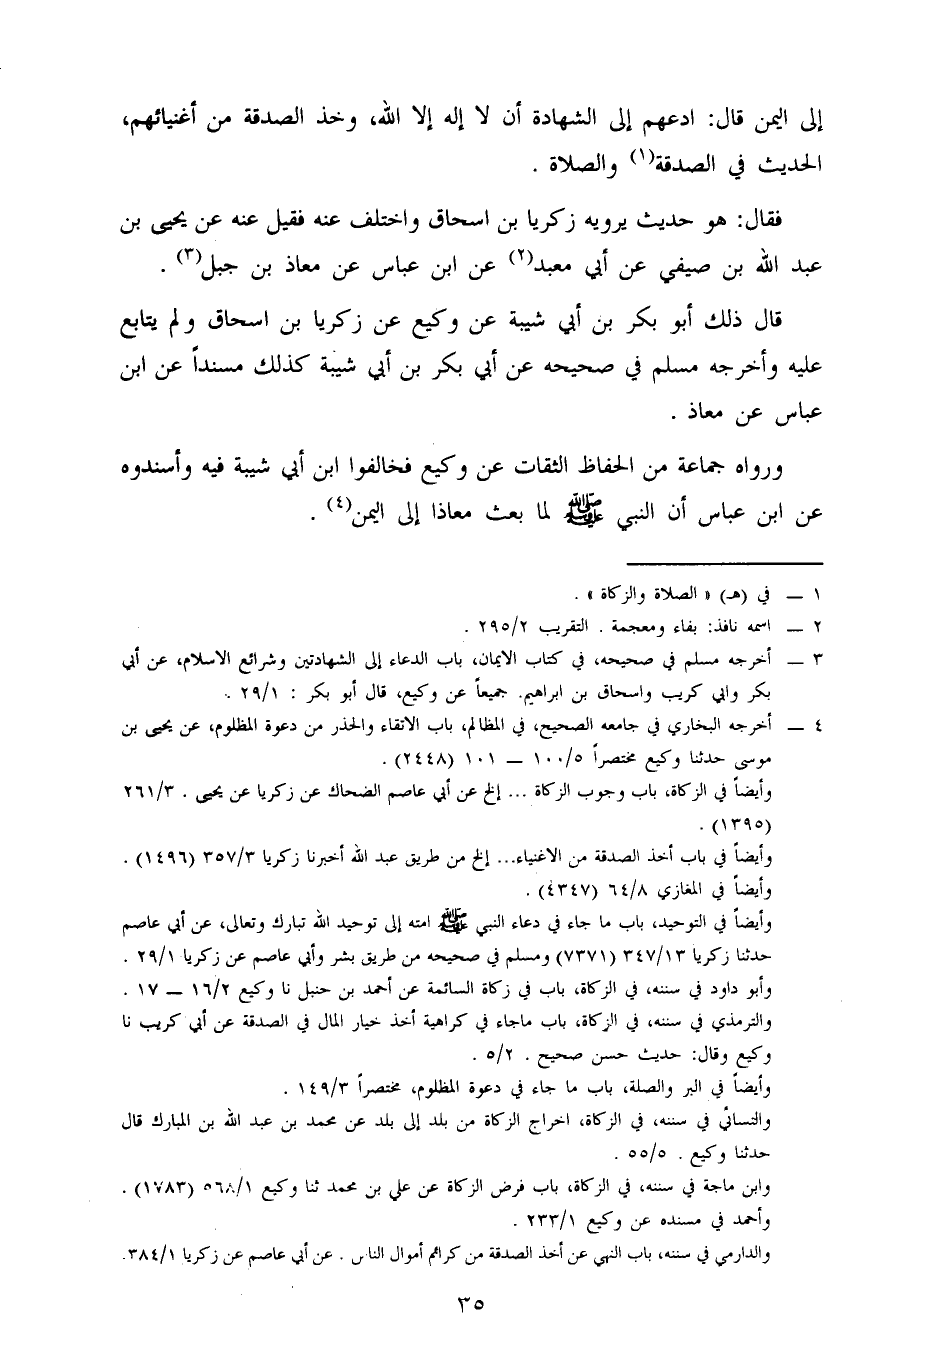 إلى اليمن قال: ادعهم إلى الشهادة أن لا إله إلا الله، وخذ الصدقة من أغنيائهم،
الحديث في الصدقة(١) والصلاة .
فقال: هو حديث يرويه زكريا بن اسحاق واختلف عنه فقيل عنه عن يحيى بن
عبد الله بن صيفي عن أبي معبد(٢) عن ابن عباس عن معاذ بن جبل(٣) .
قال ذلك أبو بكر بن أبي شيبة عن وكيع عن زكريا بن اسحاق ولم يتابع
عليه وأخرجه مسلم في صحيحه عن أبي بكر بن أبي شيبة كذلك مسنداً عن ابن
عباس عن معاذ .
ورواه جماعة من الحفاظ الثقات عن وكيع فخالفوا ابن أبي شيبة فيه وأسندوه
عن ابن عباس أن النبي ﷺ لما بعث معاذا إلى اليمن(٤) .
١ — في (هـ) « الصلاة والزكاة » .
٢ — اسمه نافذ: بفاء ومعجمة . التقريب ٢٩٥/٢ .
٣ — أخرجه مسلم في صحيحه، في كتاب الايمان، باب الدعاء إلى الشهادتين وشرائع الاسلام، عن أبي
بكر وابي كريب واسحاق بن ابراهيم. جميعاً عن وكيع، قال أبو بكر : ٢٩/١ .
٤ — أخرجه البخاري في جامعه الصحيح، في المظالم، باب الاتقاء والحذر من دعوة المظلوم، عن يحيى بن
موسى حدثنا وكيع مختصراً ١٠٠/٥ — ١٠١ (٢٤٤٨) .
وأيضاً في الزكاة، باب وجوب الزكاة ... إلخ عن أبي عاصم الضحاك عن زكريا عن يحيى . ٢٦١/٣
(١٣٩٥) .
وأيضاً في باب أخذ الصدقة من الاغنياء... إلخ من طريق عبد الله أخبرنا زكريا ٣٥٧/٣ (١٤٩٦) .
وأيضاً في المغازي ٦٤/٨ (٤٣٤٧) .
وأيضاً في التوحيد، باب ما جاء في دعاء النبي ﷺ امته إلى توحيد الله تبارك وتعالى، عن أبي عاصم
حدثنا زكريا ٣٤٧/١٣ (٧٣٧١) ومسلم في صحيحه من طريق بشر وأبي عاصم عن زكريا ٢٩/١ .
وأبو داود في سننه، في الزكاة، باب في زكاة السائمة عن أحمد بن حنبل نا وكيع ١٦/٢ — ١٧ .
والترمذي في سننه، في الزكاة، باب ماجاء في كراهية أخذ خيار المال في الصدقة عن أبي كريب نا
وكيع وقال: حديث حسن صحيح . ٥/٢ .
وأيضاً في البر والصلة، باب ما جاء في دعوة المظلوم، مختصراً ١٤٩/٣ .
والنسائي في سننه، في الزكاة، اخراج الزكاة من بلد إلى بلد عن محمد بن عبد الله بن المبارك قال
حدثنا وكيع . ٥٥/٥ .
وابن ماجة في سننه، في الزكاة، باب فرض الزكاة عن علي بن محمد ثنا وكيع ٥٦٨/١ (١٧٨٣) .
وأحمد في مسنده عن وكيع ٢٣٣/١ .
والدارمي في سننه، باب النهي عن أخذ الصدقة من كرائم أموال الناس . عن أبي عاصم عن زكريا ٣٨٤/١.
٣٥